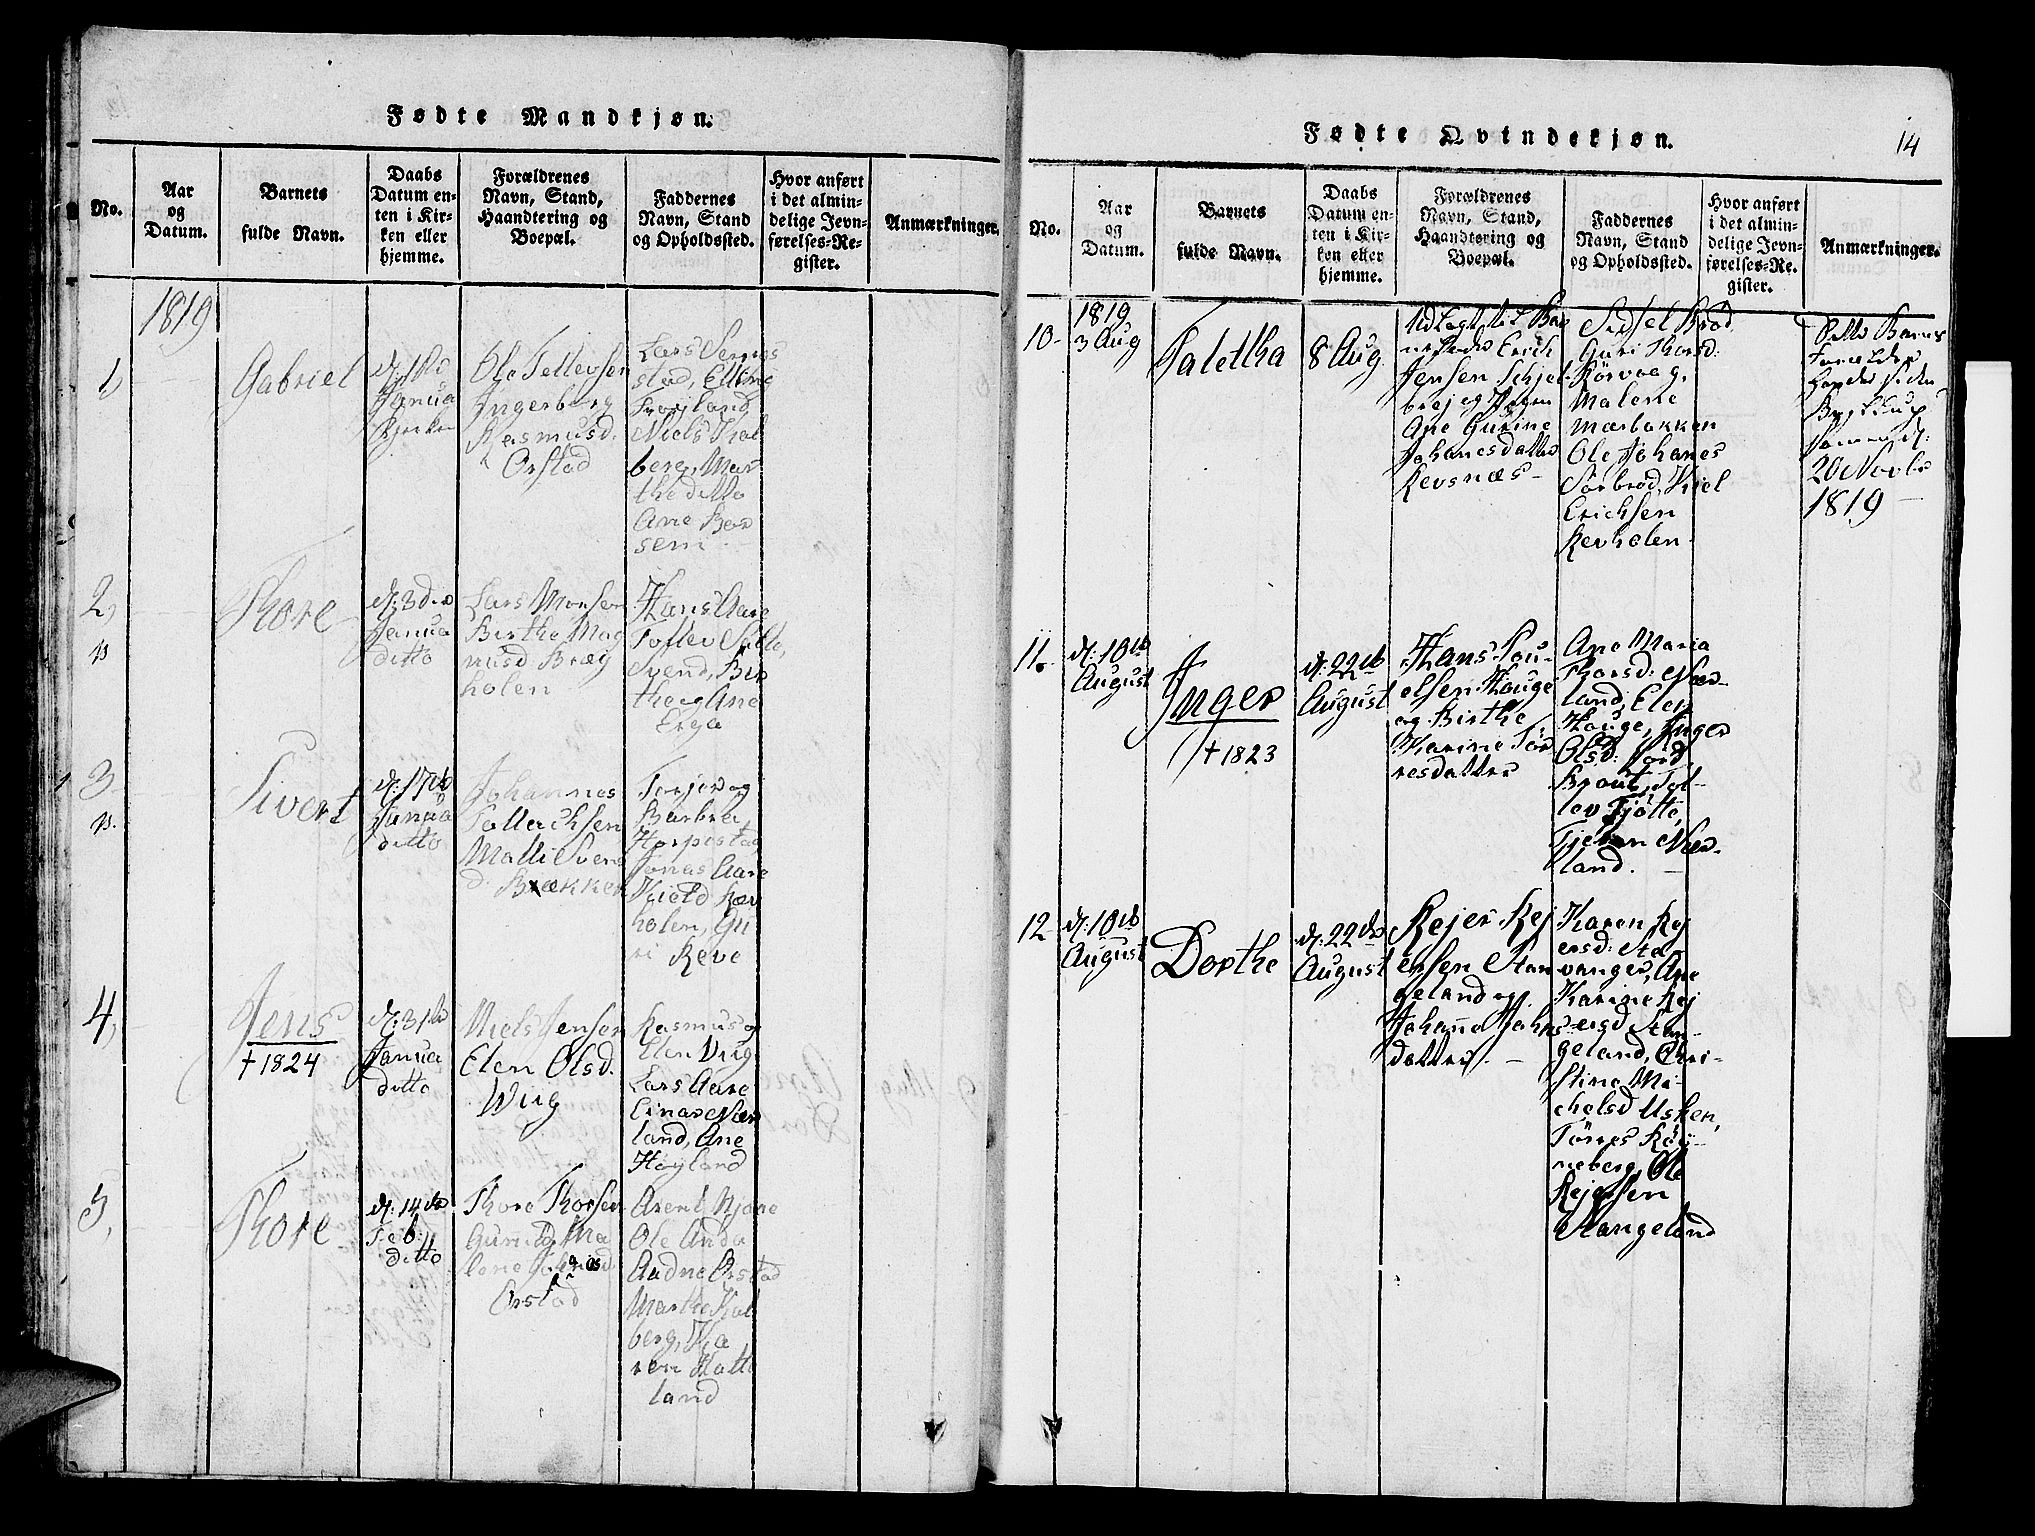 Fødte Mandkjøn.
No.
Aar
og
Datum.
Barnets
fulde Navn.
Daabs
Datum en-
ten i Kir-
ken eller
hjemme.
Forældrenes
Navn, Stand,
Haandtering og
Boepæl.
Faddernes
Navn, Stand
og Opholdssted.
Hvor anført
i det almin-
delige Jevn-
førelses-Re-
gister.
Anmærkninger.
1819
1
Gabriel
Janua
Ole Tellevsen
Ingerborg
Rasmusd.
Orstad
stad, Elline
Frøjland
Niels Kal
berg, Mar
the ditto
Ane Bor
sem
2,
Thore
d: 3die
Janua
ditto
Lars Monsen
Birthe Mag
nusd: Bræg
holen
Hans Aare
Tollev
Svend, Bir
the og Ane
Erga
3
Sivert
d: 17de
Janua
ditto
Johannes
Tollachsen
Malli Svens
d. Brækken
Torjer og
Barbra
Harpestad
Jonas Aare
Kield Rev
holen, Gu
ri Reve
4,
Jens
+ 1824
d: 31te
Janua
ditto
Niels Jensen
Elen Olsd.
Wiig
Rasmus og
Elen Viig
Lars Aare
Einar Nær
land, Ane
Høyland
5,
Thore
d: 14de
Feb:
ditto
Thore Thorsen
Gunild Ma
lene
Orstad
Arent Njone
Ole Anda
Aadne Orstad
Marthe Kal
berg, Ka
ren Hatte
land
Fødte Qvindekjøn.
14
No.
Aar
og
Datum.
Barnets
fulde Navn.
Daabs
Datum en-
ten i Kir-
ken eller
hjemme.
Forældrenes
Navn, Stand,
Haandtering og
Boepæl.
Faddernes
Navn, Stand
og Opholdssted.
Hvor anført
i det almin-
delige Jevn-
førelses-Re-
gister.
Anmærkninger.
10
1819
3 Aug
Taletha
8 Aug
Udlagt til Bar
nefader Erich
Jensen
Ane Gurine
Johanesdatter
Revsnæs
Sidsel Brod
Guri Thorsd:
Körvoeg,
Malene
Mærbakken
Ole Johanes
Sørbrod, Kiel
Erichsen
Revholen
Forældre
20 Novbr
1819
11.
d: 10de
August
Inger
+ 1823
d: 22de
August
Hans Pou-
elsen Houge
og Birthe
Karine Tör
resdatter
Ane Maria
Thorsd: Nær-
land, Elen
Houge, Inger
Olsd:
Braut, Tol-
lev Tjötte,
Nær-
land.
12
d: 10de
August
Dorthe
d: 22de
August
Rejer Rej
ersen Stan
geland og
Johanne Johns
datter
Karen Rej
ersd: Sta-
vanger, Ane
Karine Rej
ersd Stan-
geland, Chri-
stine Mi-
chelsd Usken,
Törres Röy-
neberg, Ole
Rejersen
Stangeland